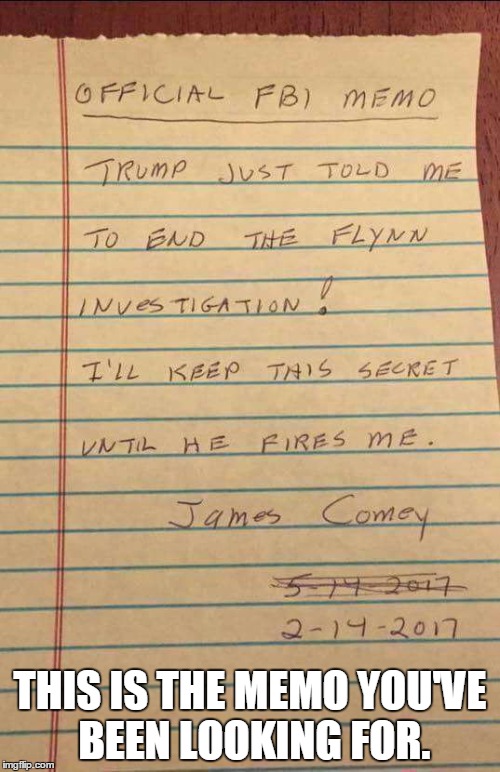 OFFICIAL FBI MEMO
TRUMP JUST TOLD ME
TO END THE FLYNN
INVESTIGATION!
I'LL KEEP THIS SECRET
UNTIL HE FIRES ME.
James Comey
5-14-2017
2-14-2017
THIS IS THE MEMO YOU'VE
BEEN LOOKING FOR.
imgflip.com